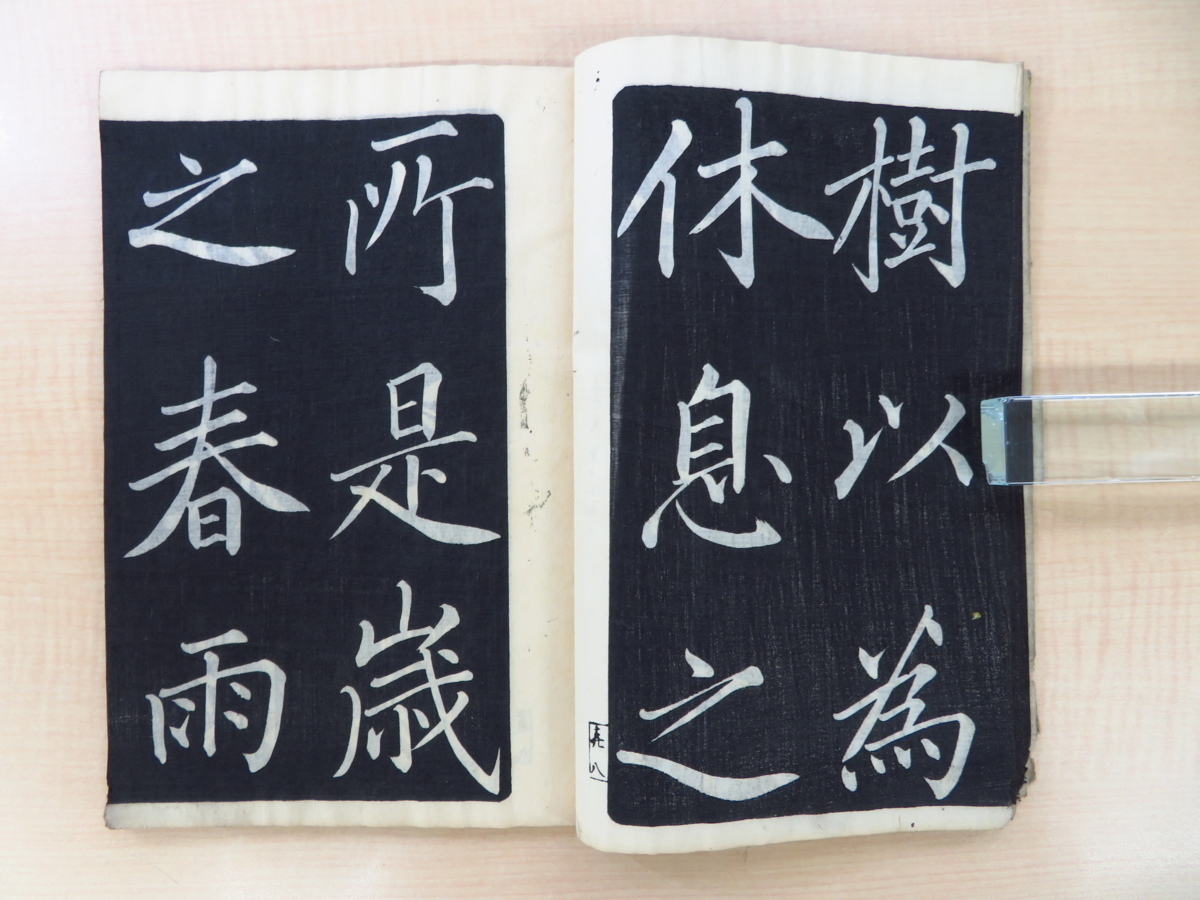 樹以為
休息之
所是歳
之春雨